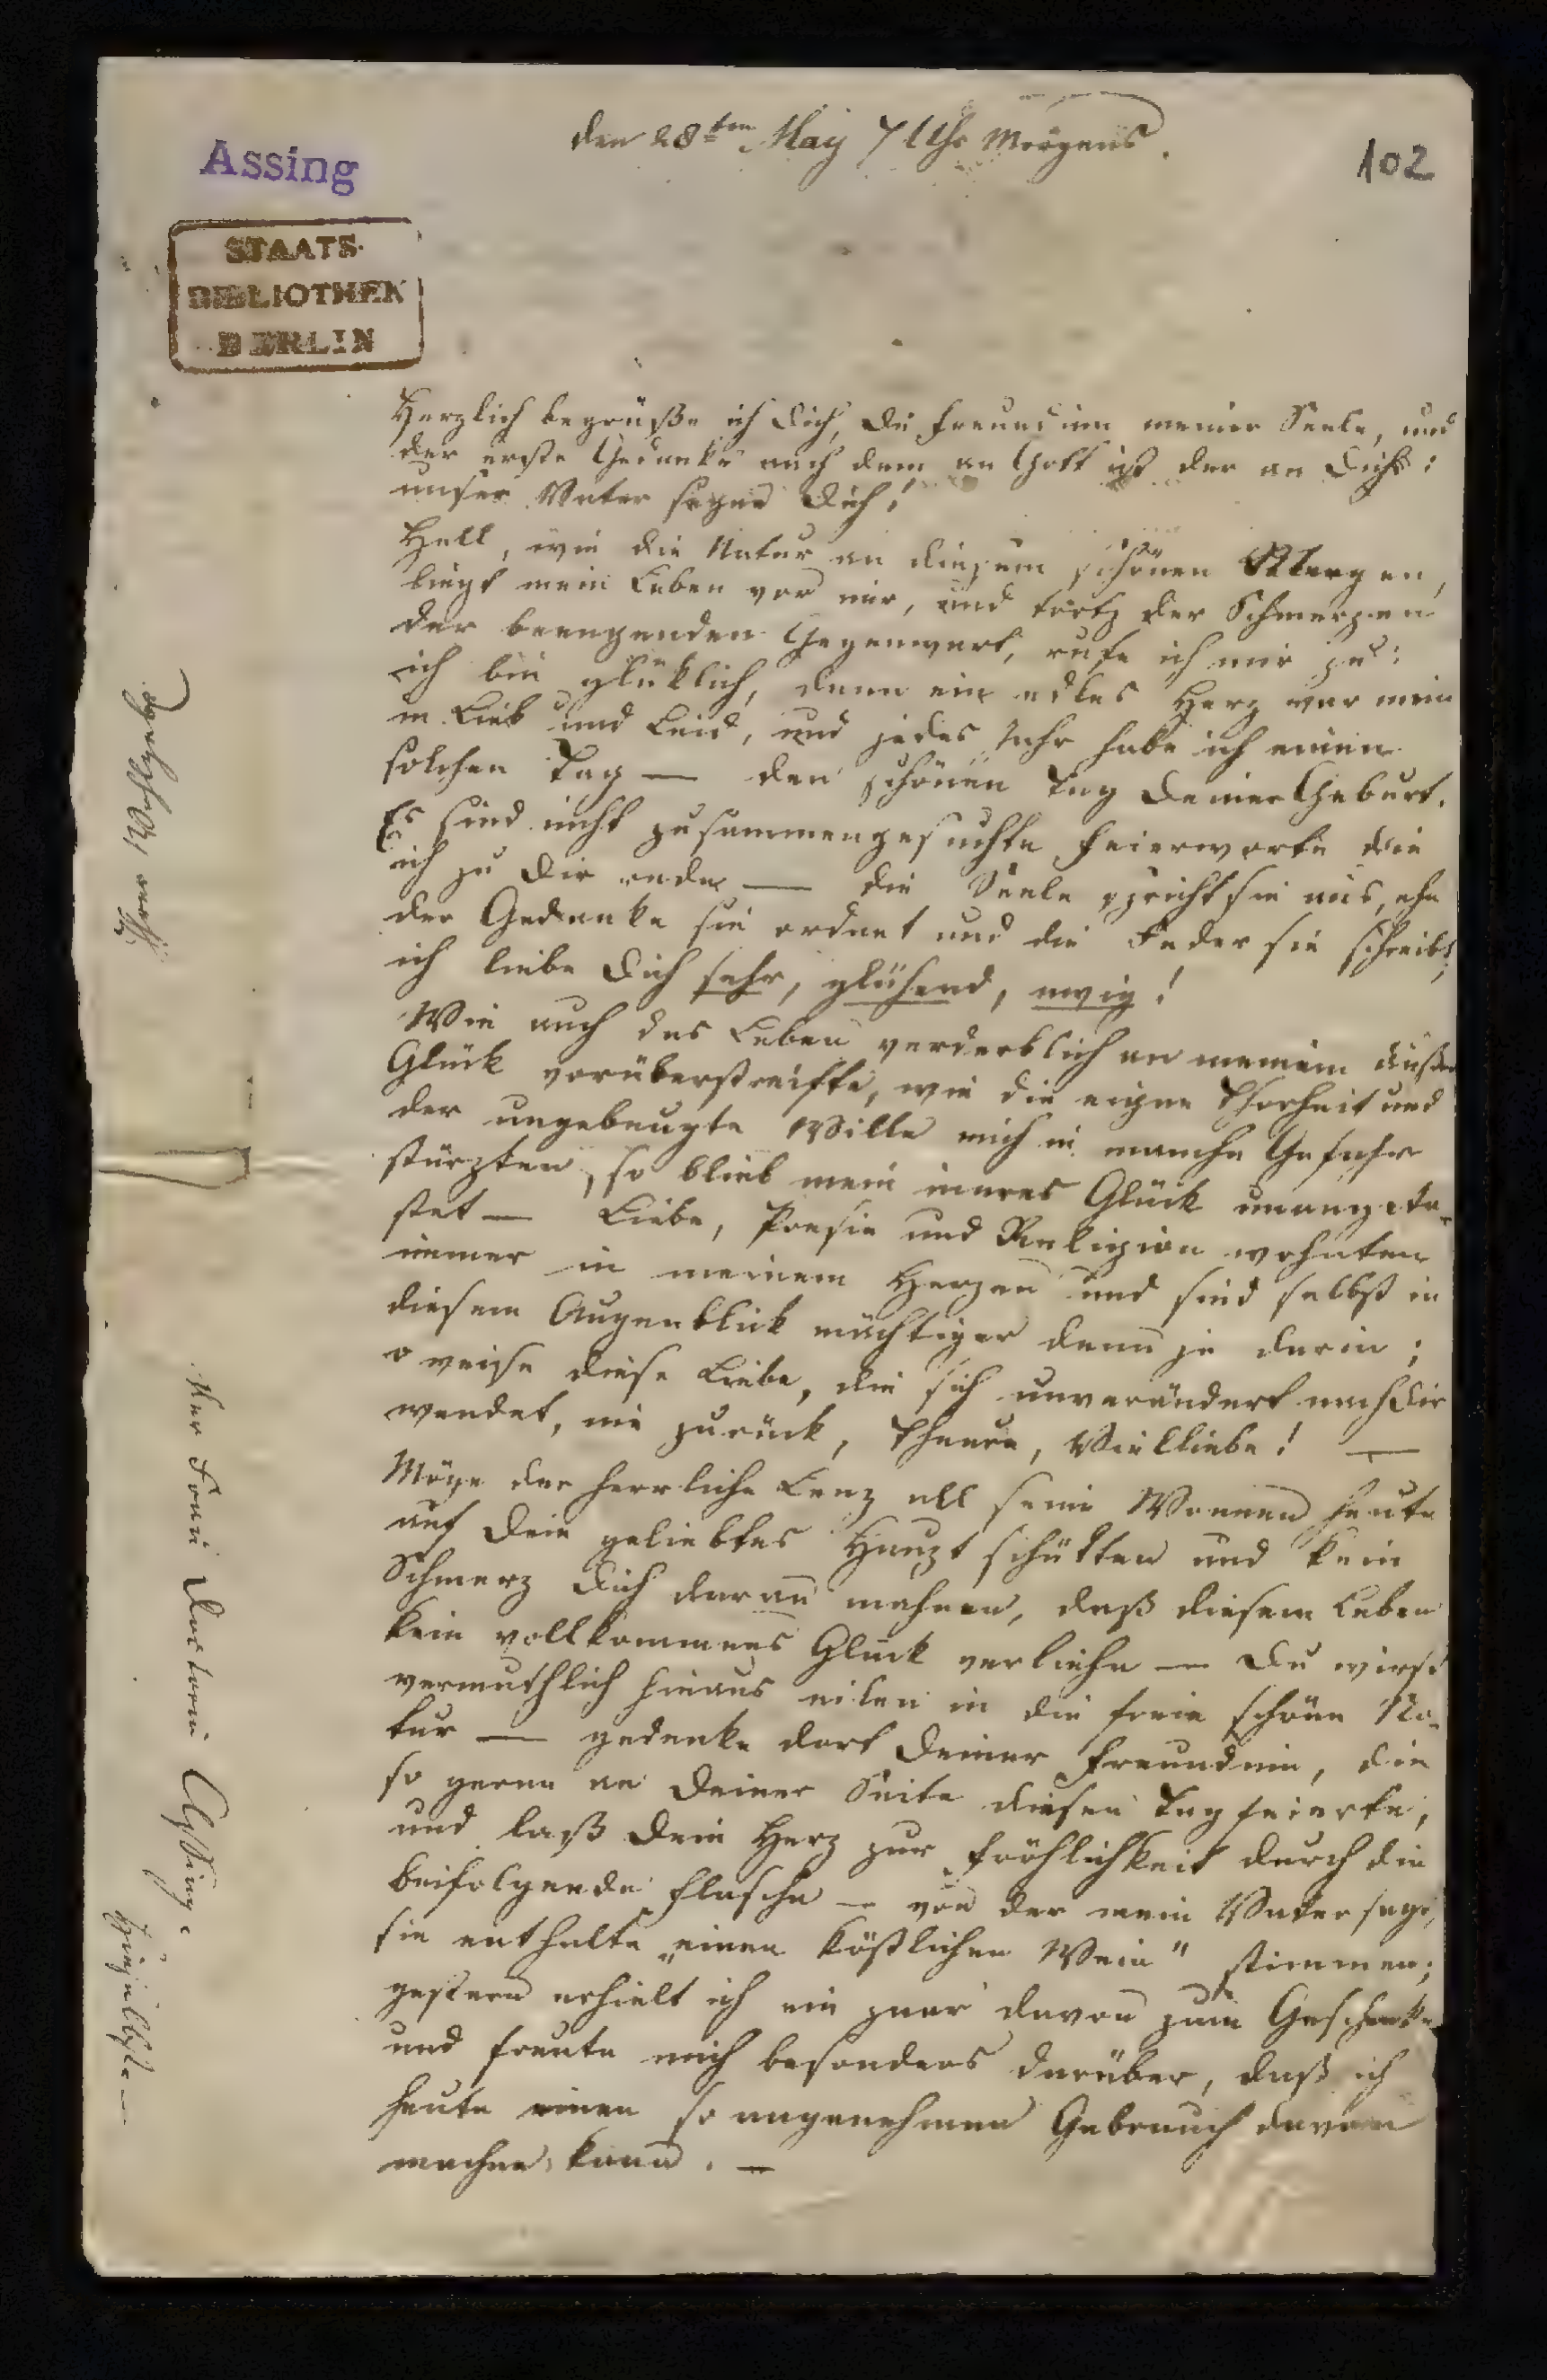 Assing
den 28ten May 7 Uhr Morgens.
102
STAATS-
BIBLIOTHEK
BERLIN
Herzlich begrüße ich Dich, Du Freundinn meiner Seele, und
der erste Gedanke nach dem an Gott ist der an Dich:
unser Vater segne Dich!
Hell, wie die Natur an diesem schönen Morgen,
liegt mein Leben vor mir, und trotz der Schmerzen
der beengenden Gegenwart, rufe ich mir zu:
ich bin glüklich, denn ein edles Herz war mein
in Lieb und Leid, und jedes Jahr habe ich einen
solchen Tag — den schönen Tag Deiner Geburt.
Es sind nicht zusammengesuchte Feierworte die
ich zu Dir rede — die Seele spricht sie aus, ehe
der Gedanke sie ordnet und die Feder sie schreibt;
ich liebe Dich sehr, glühend, ewig!
Wie auch das Leben verderblich an meinem äußern
Glück vorüberstreifte, wie die eigne Thorheit und
der ungebeugte Wille mich in manche Gefahr
stürzten, so blieb mein inneres Glück unangeta-
stet — Liebe, Poesie und Religion wohnten
immer in meinem Herzen und sind selbst in
diesem Augenblick mächtiger denn je darin;
o weise diese Liebe, die sich unverändert nach Dir
wendet, nie zurück, Theure, Vielliebe! —
Möge der herrliche Lenz all seine Wonnen heute
auf Dein geliebtes Haupt schütten und kein
Schmerz Dich daran mahnen, daß diesem Leben
kein vollkommnes Glück verliehn — Du wirst
vermuthlich hinaus eilen in die freie schöne Na-
tur — gedenke dort Deiner Freundin, die
so gerne an Deiner Seite diesen Tag feierte,
und laß Dein Herz zur Fröhlichkeit durch die
beifolgende Flasche — von der mein Vater sagt,
sie enthalte „einen köstlichen Wein" stimmen;
gestern erhielt ich ein paar davon zum Geschenke
und freute mich besonders darüber, daß ich
heute einen so angenehmen Gebrauch davon
machen kann. —
Ihrer Wohlgeb.
der Frau Doctorin Assing.
hieselbst —